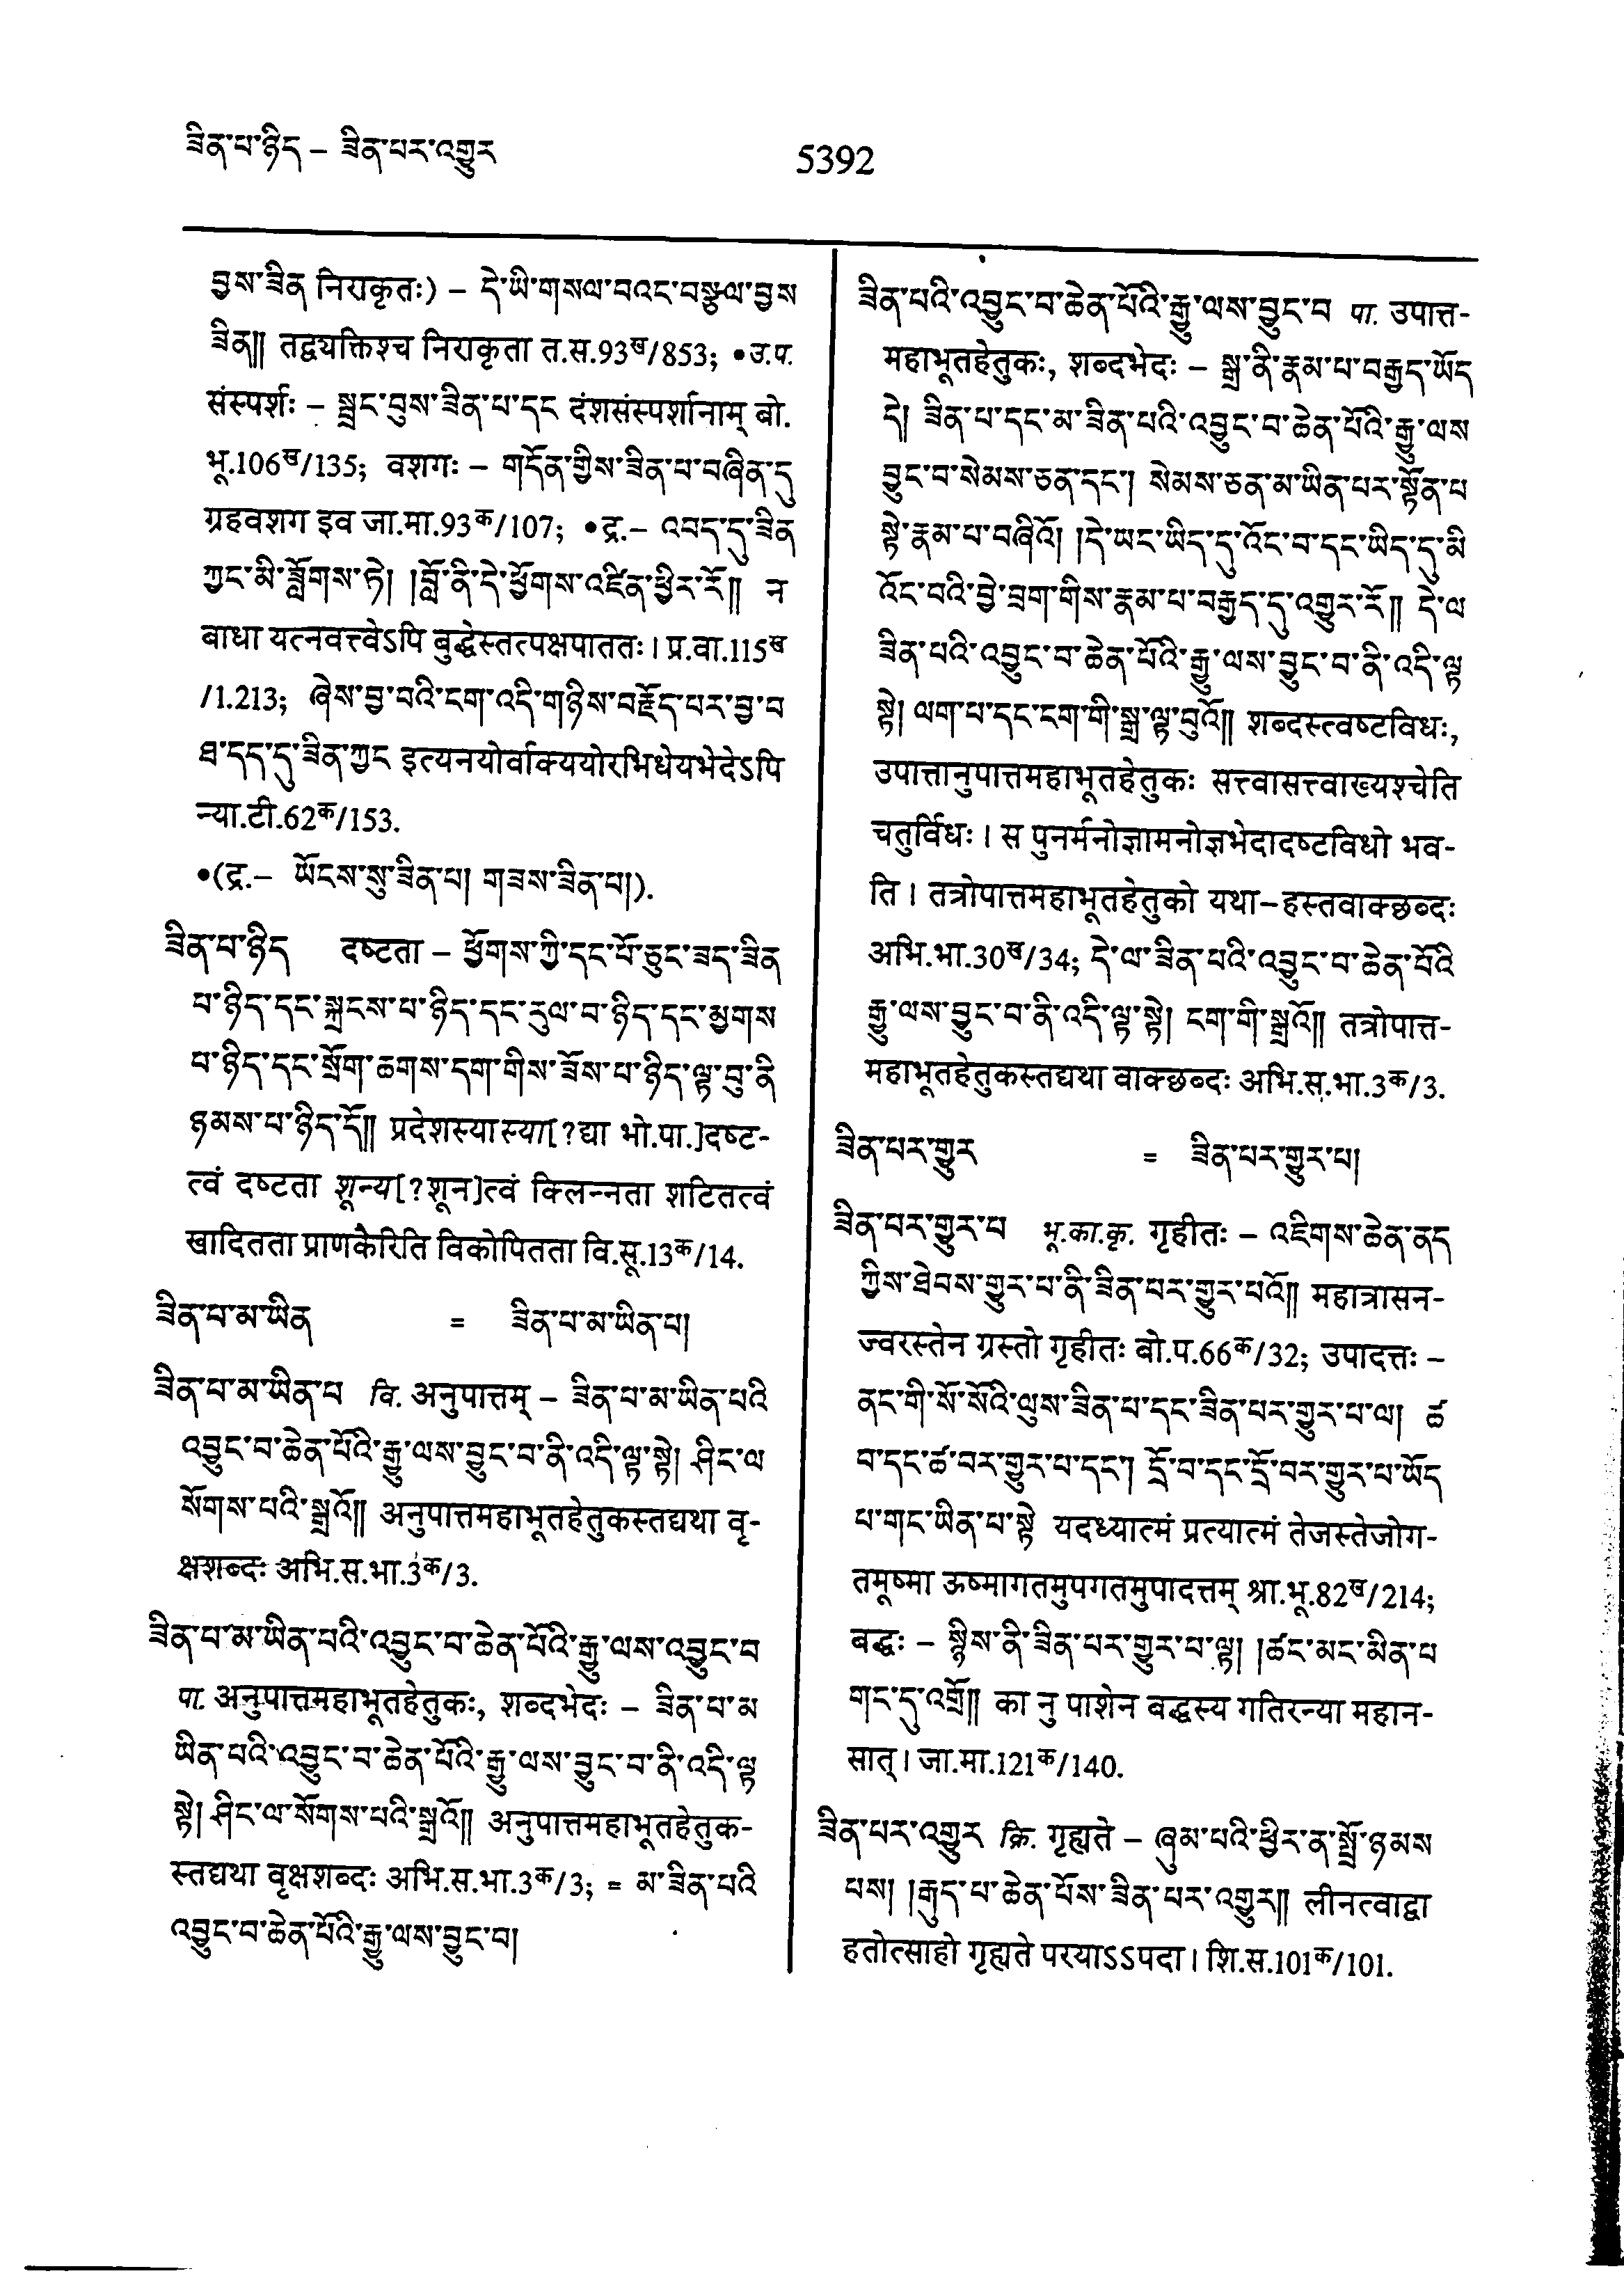 ཟིན་པ་ཉིད – ཟིན་པར་འགྱུར
5392
བྱས་ཟིན निराकृतः) – དེ་ཡི་གསལ་བའང་བསྩལ་བྱས
ཟིན༎ तद्व्यक्तिश्च निराकृता त.स.93ख/853; •उ.प.
संस्पर्शः – སྦྲང་བུས་ཟིན་པ་དང दंशसंस्पर्शानाम् बो.
भू.106ख/135; वशगः – གདོན་གྱིས་ཟིན་པ་བཞིན་དུ
ग्रहवशग इव जा.मा.93क/107; •द्र.– འབད་དུ་ཟིན
ཀྱང་མི་ཟློགས་ཏེ། །བློ་ནི་དེ་ཕྱོགས་འཛིན་ཕྱིར་རོ༎ न
बाधा यत्नवत्त्वेऽपि बुद्धेस्तत्पक्षपाततः। प्र.वा.115ख
/1.213; ཞེས་བྱ་བའི་ངག་འདི་གཉིས་བརྗོད་པར་བྱ་བ
ཐ་དད་དུ་ཟིན་ཀྱང इत्यनयोर्वाक्ययोरभिधेयभेदेऽपि
न्या.टी.62क/153.
•(द्र.– ཡོངས་སུ་ཟིན་པ། གཟས་ཟིན་པ།).
ཟིན་པ་ཉིད दष्टता – ཕྱོགས་ཀྱི་དང་པོ་ཅུང་ཟད་ཟིན
པ་ཉིད་དང་སྐྲངས་པ་ཉིད་དང་རུལ་བ་ཉིད་དང་མྱགས
པ་ཉིད་དང་སྲོག་ཆགས་དག་གིས་ཟོས་པ་ཉིད་ལྟ་བུ་ནི
ཉམས་པ་ཉིད་དོ༎ प्रदेशस्यास्या[?द्या भो.पा.]दष्ट-
त्वं दष्टता शून्य[?शून]त्वं क्लिन्नता शटितत्वं
खादितता प्राणकैरिति विकोपितता वि.सू.13क/14.
ཟིན་པ་མ་ཡིན = ཟིན་པ་མ་ཡིན་པ།
ཟིན་པ་མ་ཡིན་པ वि. अनुपात्तम् – ཟིན་པ་མ་ཡིན་པའི
འབྱུང་བ་ཆེན་པོའི་རྒྱུ་ལས་བྱུང་བ་ནི་འདི་ལྟ་སྟེ། ཤིང་ལ
སོགས་པའི་སྒྲའོ༎ अनुपात्तमहाभूतहेतुकस्तद्यथा वृ-
क्षशब्दः अभि.स.भा.3क/3.
ཟིན་པ་མ་ཡིན་པའི་འབྱུང་བ་ཆེན་པོའི་རྒྱུ་ལས་འབྱུང་བ
पा. अनुपात्तमहाभूतहेतुकः, शब्दभेदः – ཟིན་པ་མ
ཡིན་པའི་འབྱུང་བ་ཆེན་པོའི་རྒྱུ་ལས་བྱུང་བ་ནི་འདི་ལྟ
སྟེ། ཤིང་ལ་སོགས་པའི་སྒྲའོ༎ अनुपात्तमहाभूतहेतुक-
स्तद्यथा वृक्षशब्दः अभि.स.भा.3क/3; = མ་ཟིན་པའི
འབྱུང་བ་ཆེན་པོའི་རྒྱུ་ལས་བྱུང་བ།
ཟིན་པའི་འབྱུང་བ་ཆེན་པོའི་རྒྱུ་ལས་བྱུང་བ पा. उपात्त-
महाभूतहेतुकः, शब्दभेदः – སྒྲ་ནི་རྣམ་པ་བརྒྱད་ཡོད
དེ། ཟིན་པ་དང་མ་ཟིན་པའི་འབྱུང་བ་ཆེན་པོའི་རྒྱུ་ལས
བྱུང་བ་སེམས་ཅན་དང་། སེམས་ཅན་མ་ཡིན་པར་སྟོན་པ
སྟེ་རྣམ་པ་བཞིའོ། །དེ་ཡང་ཡིད་དུ་འོང་བ་དང་ཡིད་དུ་མི
འོང་བའི་བྱེ་བྲག་གིས་རྣམ་པ་བརྒྱད་དུ་འགྱུར་རོ༎ དེ་ལ
ཟིན་པའི་འབྱུང་བ་ཆེན་པོའི་རྒྱུ་ལས་བྱུང་བ་ནི་འདི་ལྟ
སྟེ། ལག་པ་དང་ངག་གི་སྒྲ་ལྟ་བུའོ༎ शब्दस्त्वष्टविधः,
उपात्तानुपात्तमहाभूतहेतुकः सत्त्वासत्त्वाख्यश्चेति
चतुर्विधः। स पुनर्मनोज्ञामनोज्ञभेदादष्टविधो भव-
ति। तत्रोपात्तमहाभूतहेतुको यथा–हस्तवाक्छब्दः
अभि.भा.30ख/34; དེ་ལ་ཟིན་པའི་འབྱུང་བ་ཆེན་པོའི
རྒྱུ་ལས་བྱུང་བ་ནི་འདི་ལྟ་སྟེ། ངག་གི་སྒྲའོ༎ तत्रोपात्त-
महाभूतहेतुकस्तद्यथा वाक्छब्दः अभि.स.भा.3क/3.
ཟིན་པར་གྱུར = ཟིན་པར་གྱུར་པ།
ཟིན་པར་གྱུར་པ भू.का.कृ. गृहीतः – འཇིགས་ཆེན་ནད
ཀྱིས་ཐེབས་གྱུར་པ་ནི་ཟིན་པར་གྱུར་པའོ༎ महात्रासन-
ज्वरस्तेन ग्रस्तो गृहीतः बो.प.66क/32; उपादत्तः –
ནང་གི་སོ་སོའི་ལུས་ཟིན་པ་དང་ཟིན་པར་གྱུར་པ་ལ། ཚ
བ་དང་ཚ་བར་གྱུར་པ་དང་། དྲོ་བ་དང་དྲོ་བར་གྱུར་པ་ཡོད
པ་གང་ཡིན་པ་སྟེ यदध्यात्मं प्रत्यात्मं तेजस्तेजोग-
तमूष्मा ऊष्मागतमुपगतमुपादत्तम् श्रा.भू.82ख/214;
बद्धः – སྙིས་ནི་ཟིན་པར་གྱུར་པ་ལྟ། །ཚང་མང་མིན་པ
གང་དུ་འགྲོ༎ का नु पाशेन बद्धस्य गतिरन्या महान-
सात्। जा.मा.121क/140.
ཟིན་པར་འགྱུར क्रि. गृह्यते – ཞུམ་པའི་ཕྱིར་ན་སྤྲོ་ཉམས
པས། །རྒུད་པ་ཆེན་པོས་ཟིན་པར་འགྱུར༎ लीनत्वाद्वा
हतोत्साहो गृह्यते परयाऽऽपदा। शि.स.101क/101.